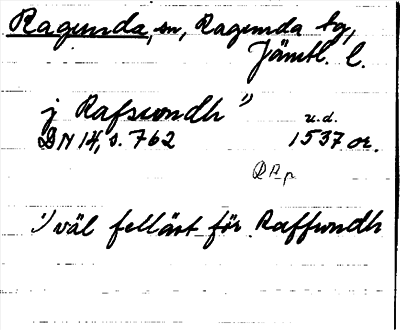 Ragunda, sn, Ragunda tg,
Jämtl. l.
j Rafswndh ¹)
u.d.
DN 14, s. 762 1537 or.
¹) väl felläst för Raffwndh